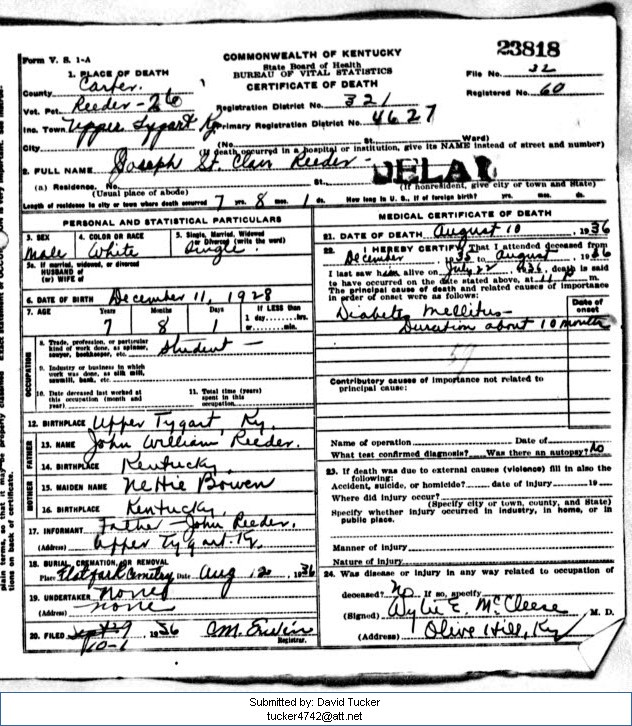 Form V. S. 1-A
COMMONWEALTH OF KENTUCKY
State Board of Health
BUREAU OF VITAL STATISTICS
CERTIFICATE OF DEATH
23818
File No. 32
Registered No. 60
1. PLACE OF DEATH
County Carter
Vot. Pct. Reeder - 26
Inc. Town Upper Tygart Ky
City
Registration District No. 321
Primary Registration District No. 4627
(No. St. Ward)
(If death occurred in a hospital or institution, give its NAME instead of street and number)
2. FULL NAME Joseph St. Clair Reeder -
DELA
(a) Residence. No. St.,
(Usual place of abode)
(If nonresident, give city or town and State)
Length of residence in city or town where death occurred 7 yrs. 8 mos. 1 ds. How long in U. S., if of foreign birth? yrs. mos. ds.
PERSONAL AND STATISTICAL PARTICULARS
3. SEX Male
4. COLOR OR RACE White
5. Single, Married, Widowed or Divorced (write the word) Single
5a. If married, widowed, or divorced
HUSBAND of
(or) WIFE of
6. DATE OF BIRTH December 11, 1928
7. AGE Years 7 Months 8 Days 1
If LESS than
1 day, hrs.
or min.
OCCUPATION
8. Trade, profession, or particular
kind of work done, as spinner,
sawyer, bookkeeper, etc. Student -
9. Industry or business in which
work was done, as silk mill,
sawmill, bank, etc.
10. Date deceased last worked at
this occupation (month and
year)
11. Total time (years)
spent in this
occupation
12. BIRTHPLACE Upper Tygart, Ky.
FATHER
13. NAME John William Reeder.
14. BIRTHPLACE Kentucky.
MOTHER
15. MAIDEN NAME Nettie Bowen
16. BIRTHPLACE Kentucky.
17. INFORMANT Father - John Reeder,
(Address) Upper Tygart. Ky.
18. BURIAL, CREMATION, OR REMOVAL
Place Cemetery Date Aug 12, 1936
19. UNDERTAKER None
(Address) none
20. FILED 1936
10-1
Registrar.
MEDICAL CERTIFICATE OF DEATH
21. DATE OF DEATH August 10, 1936
22. I HEREBY CERTIFY That I attended deceased from
December, 1935 to August, 1936
I last saw him alive on July 22, 1936, death is said
to have occurred on the date stated above, at 11 P m.
The principal cause of death and related causes of importance
in order of onset were as follows:
Date of onset
Diabetes Mellitus -
Duration about 10 months
59
Contributory causes of importance not related to
principal cause:
Name of operation Date of
What test confirmed diagnosis? Was there an autopsy? No
23. If death was due to external causes (violence) fill in also the
following:
Accident, suicide, or homicide? date of injury 19
Where did injury occur?
(Specify city or town, county, and State)
Specify whether injury occurred in industry, in home, or in
public place.
Manner of injury
Nature of injury
24. Was disease or injury in any way related to occupation of
deceased? No If so, specify
(Signed) Wylie E. McCleese, M. D.
(Address) Olive Hill, Ky
plain terms, so that it may be properly classified.
tions on back of certificate.
Submitted by: David Tucker
tucker4742@att.net